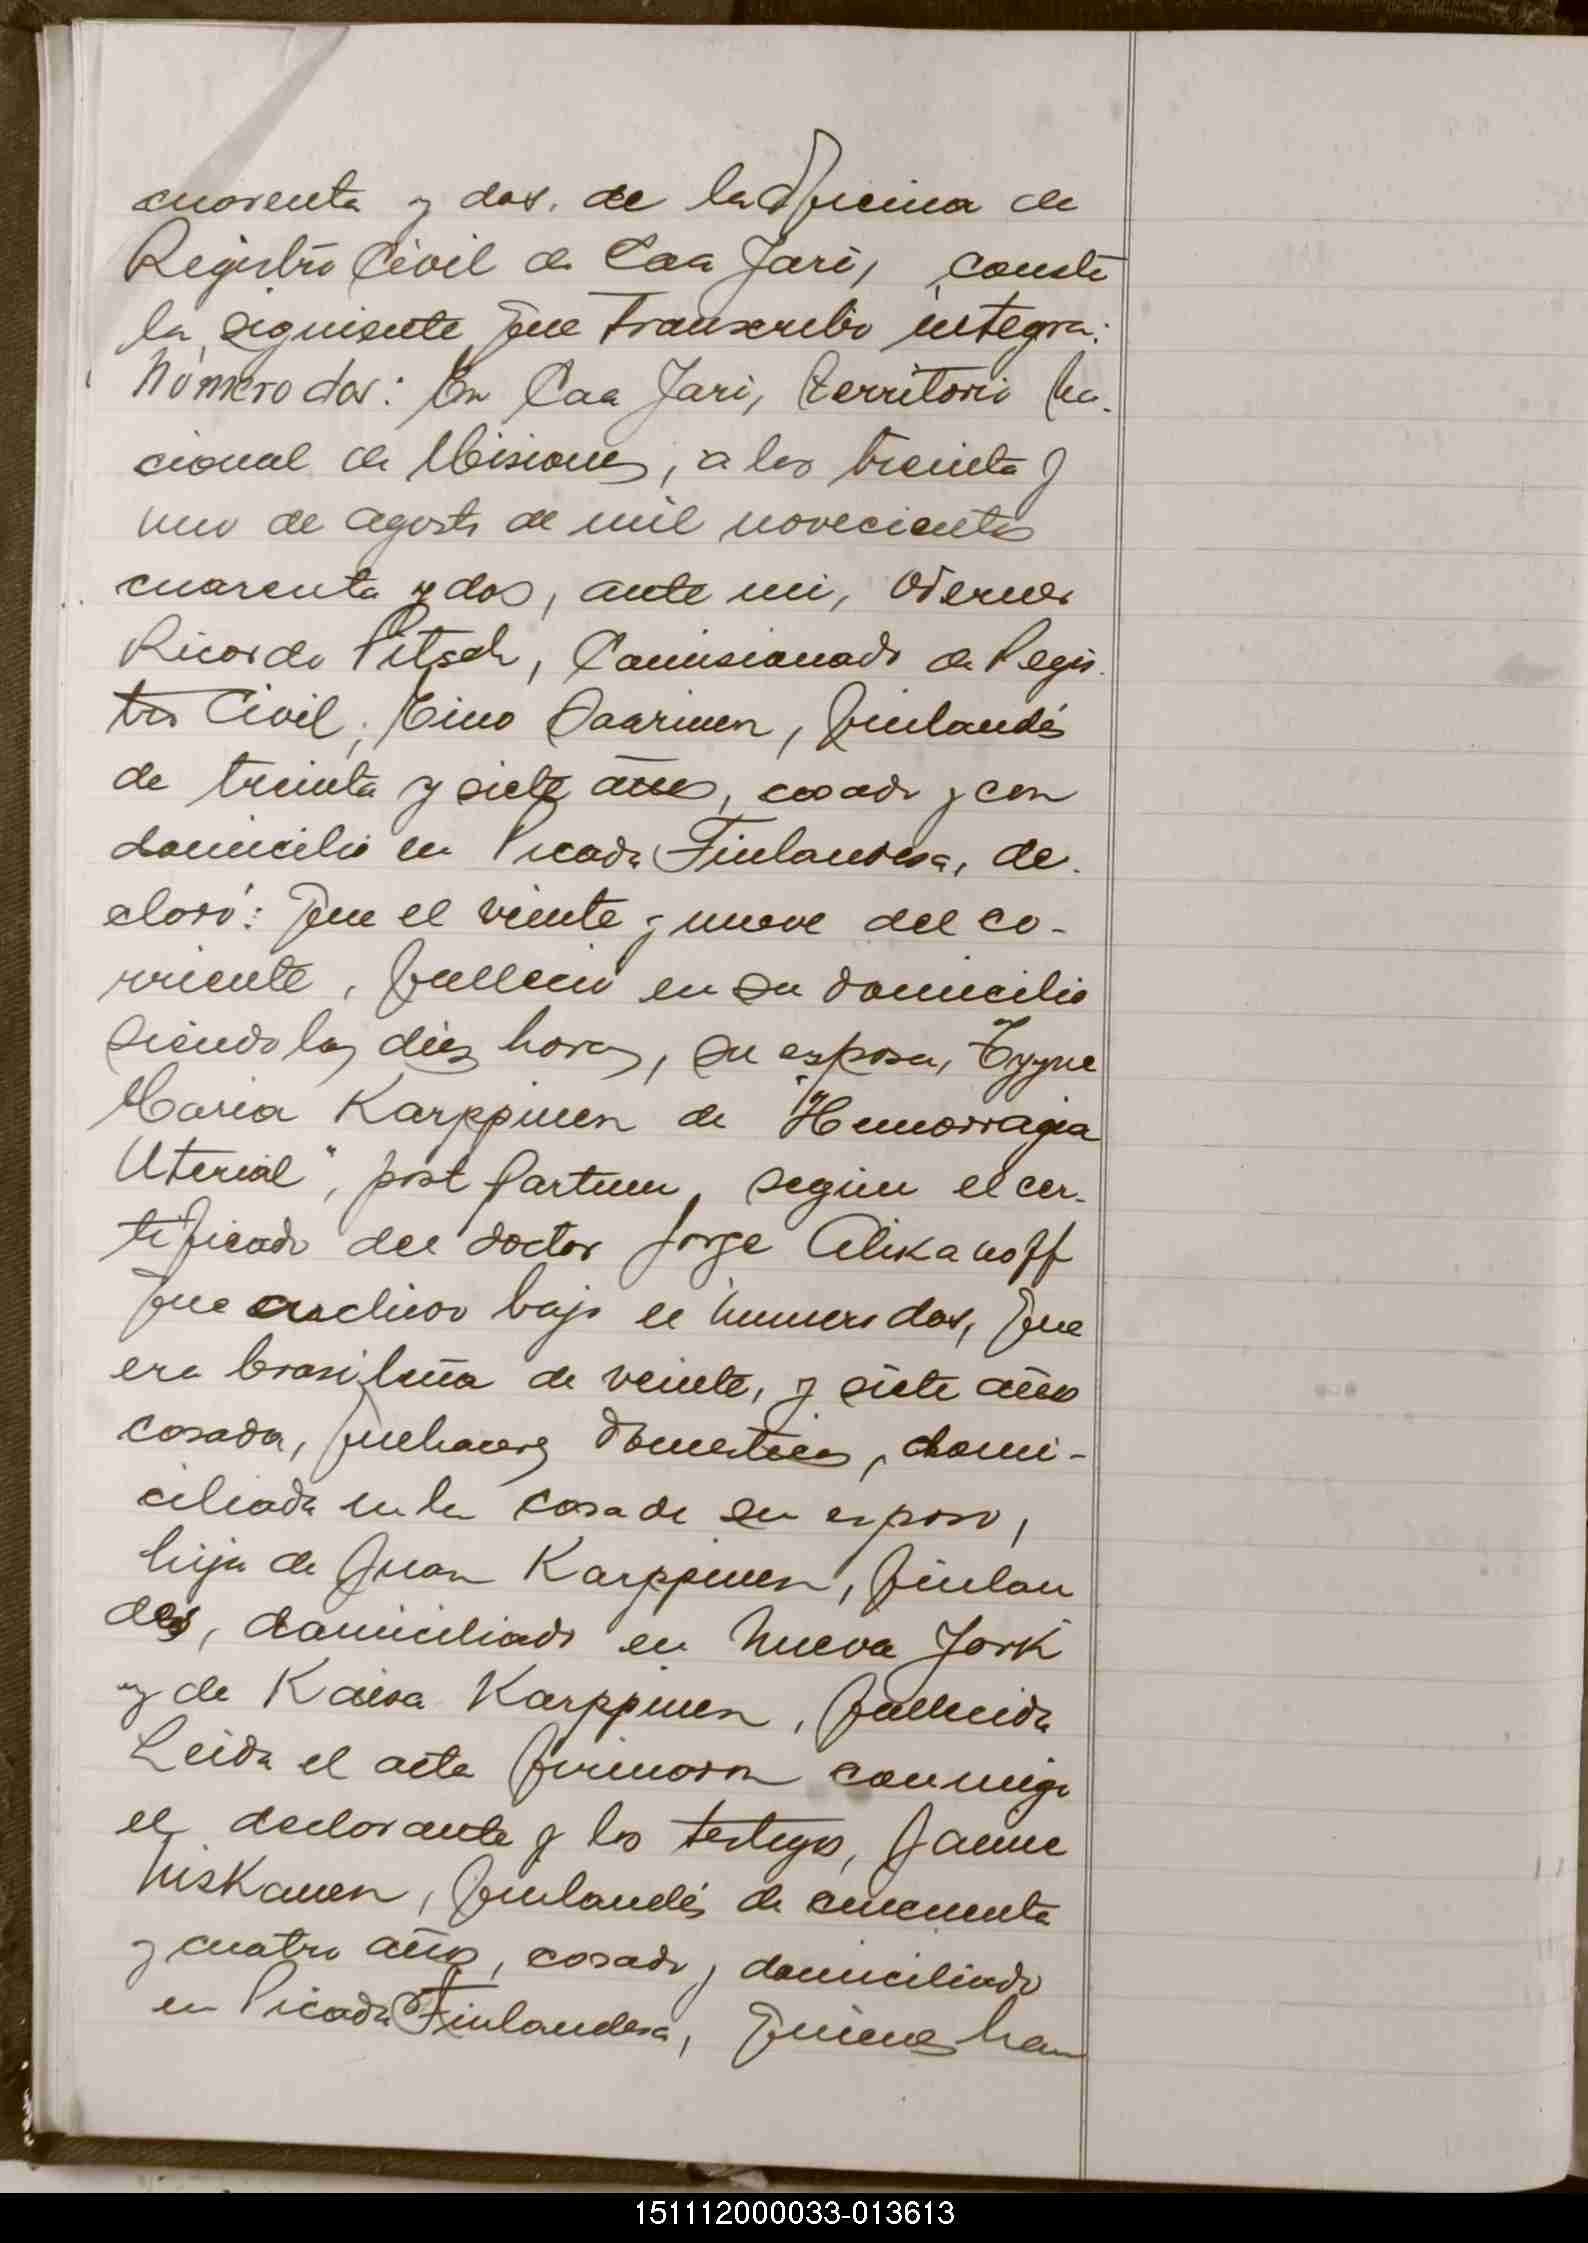 cuarenta y dos. de la Oficina de
Registro Civil de Caa Jari, consta
la siguiente que transcribo integra:
Número dos: En Caa Jari, territorio Na-
cional de Misiones, a los treinta y
uno de agosto de mil novecientos
cuarenta y dos, ante mi,
Ricardo Pitsch, Comisionado de Regis-
tro Civil; Eino Saarinen, finlandés
de treinta y siete años, casado y con
domicilio en Picada Finlandesa, de-
claró: Que el veinte y nueve del co-
rriente, falleció en su domicilio
siendo las diez horas, su esposa, Tyyne
Maria Karppinen de "Hemorragia
Uterial", post partum, según el cer-
tificado del doctor Jorge Alikanoff
que archivo bajo el número dos, que
era brasileña de veinte, y siete años
casada, quehaceres domesticos, domi-
ciliada en la casa de su esposo,
hija de Juan Karppinen, finlan
des, domiciliado en Nueva York
y de Kaisa Karppinen, fallecida
Leida el acta firmaron conmigo
el declarante y los testigos, Janne
Niskanen, finlandés de cincuenta
y cuatro años, casado y domiciliado
en Picada Finlandesa, quienes han
151112000033-013613